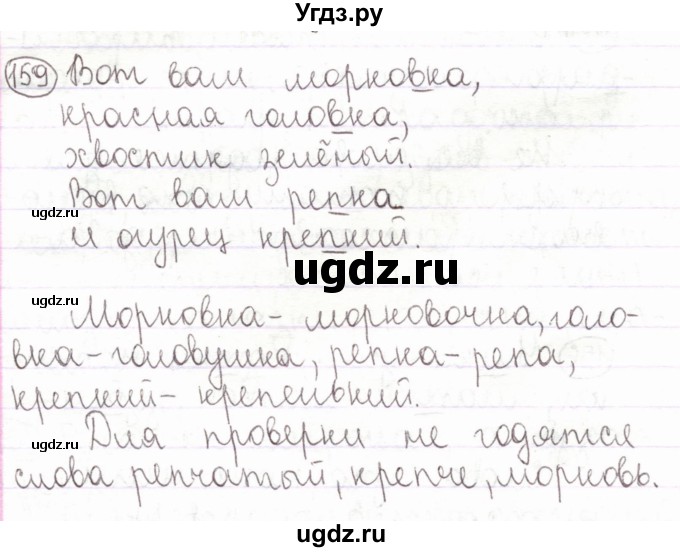 Угдз.ру
159 Вот вам морковка,
красная головка,
хвостик зелёный.
Вот вам репка
и огурец крепкий.
Морковка - морковочка, голо-
вка - головушка, репка - репа,
крепкий - крепенький.
Для проверки не годятся
слова репчатый, крепче, морковь.
ugdz.ru
ugdz.ru
ugdz.ru
ugdz.ru
ugdz.ru
ugdz.ru